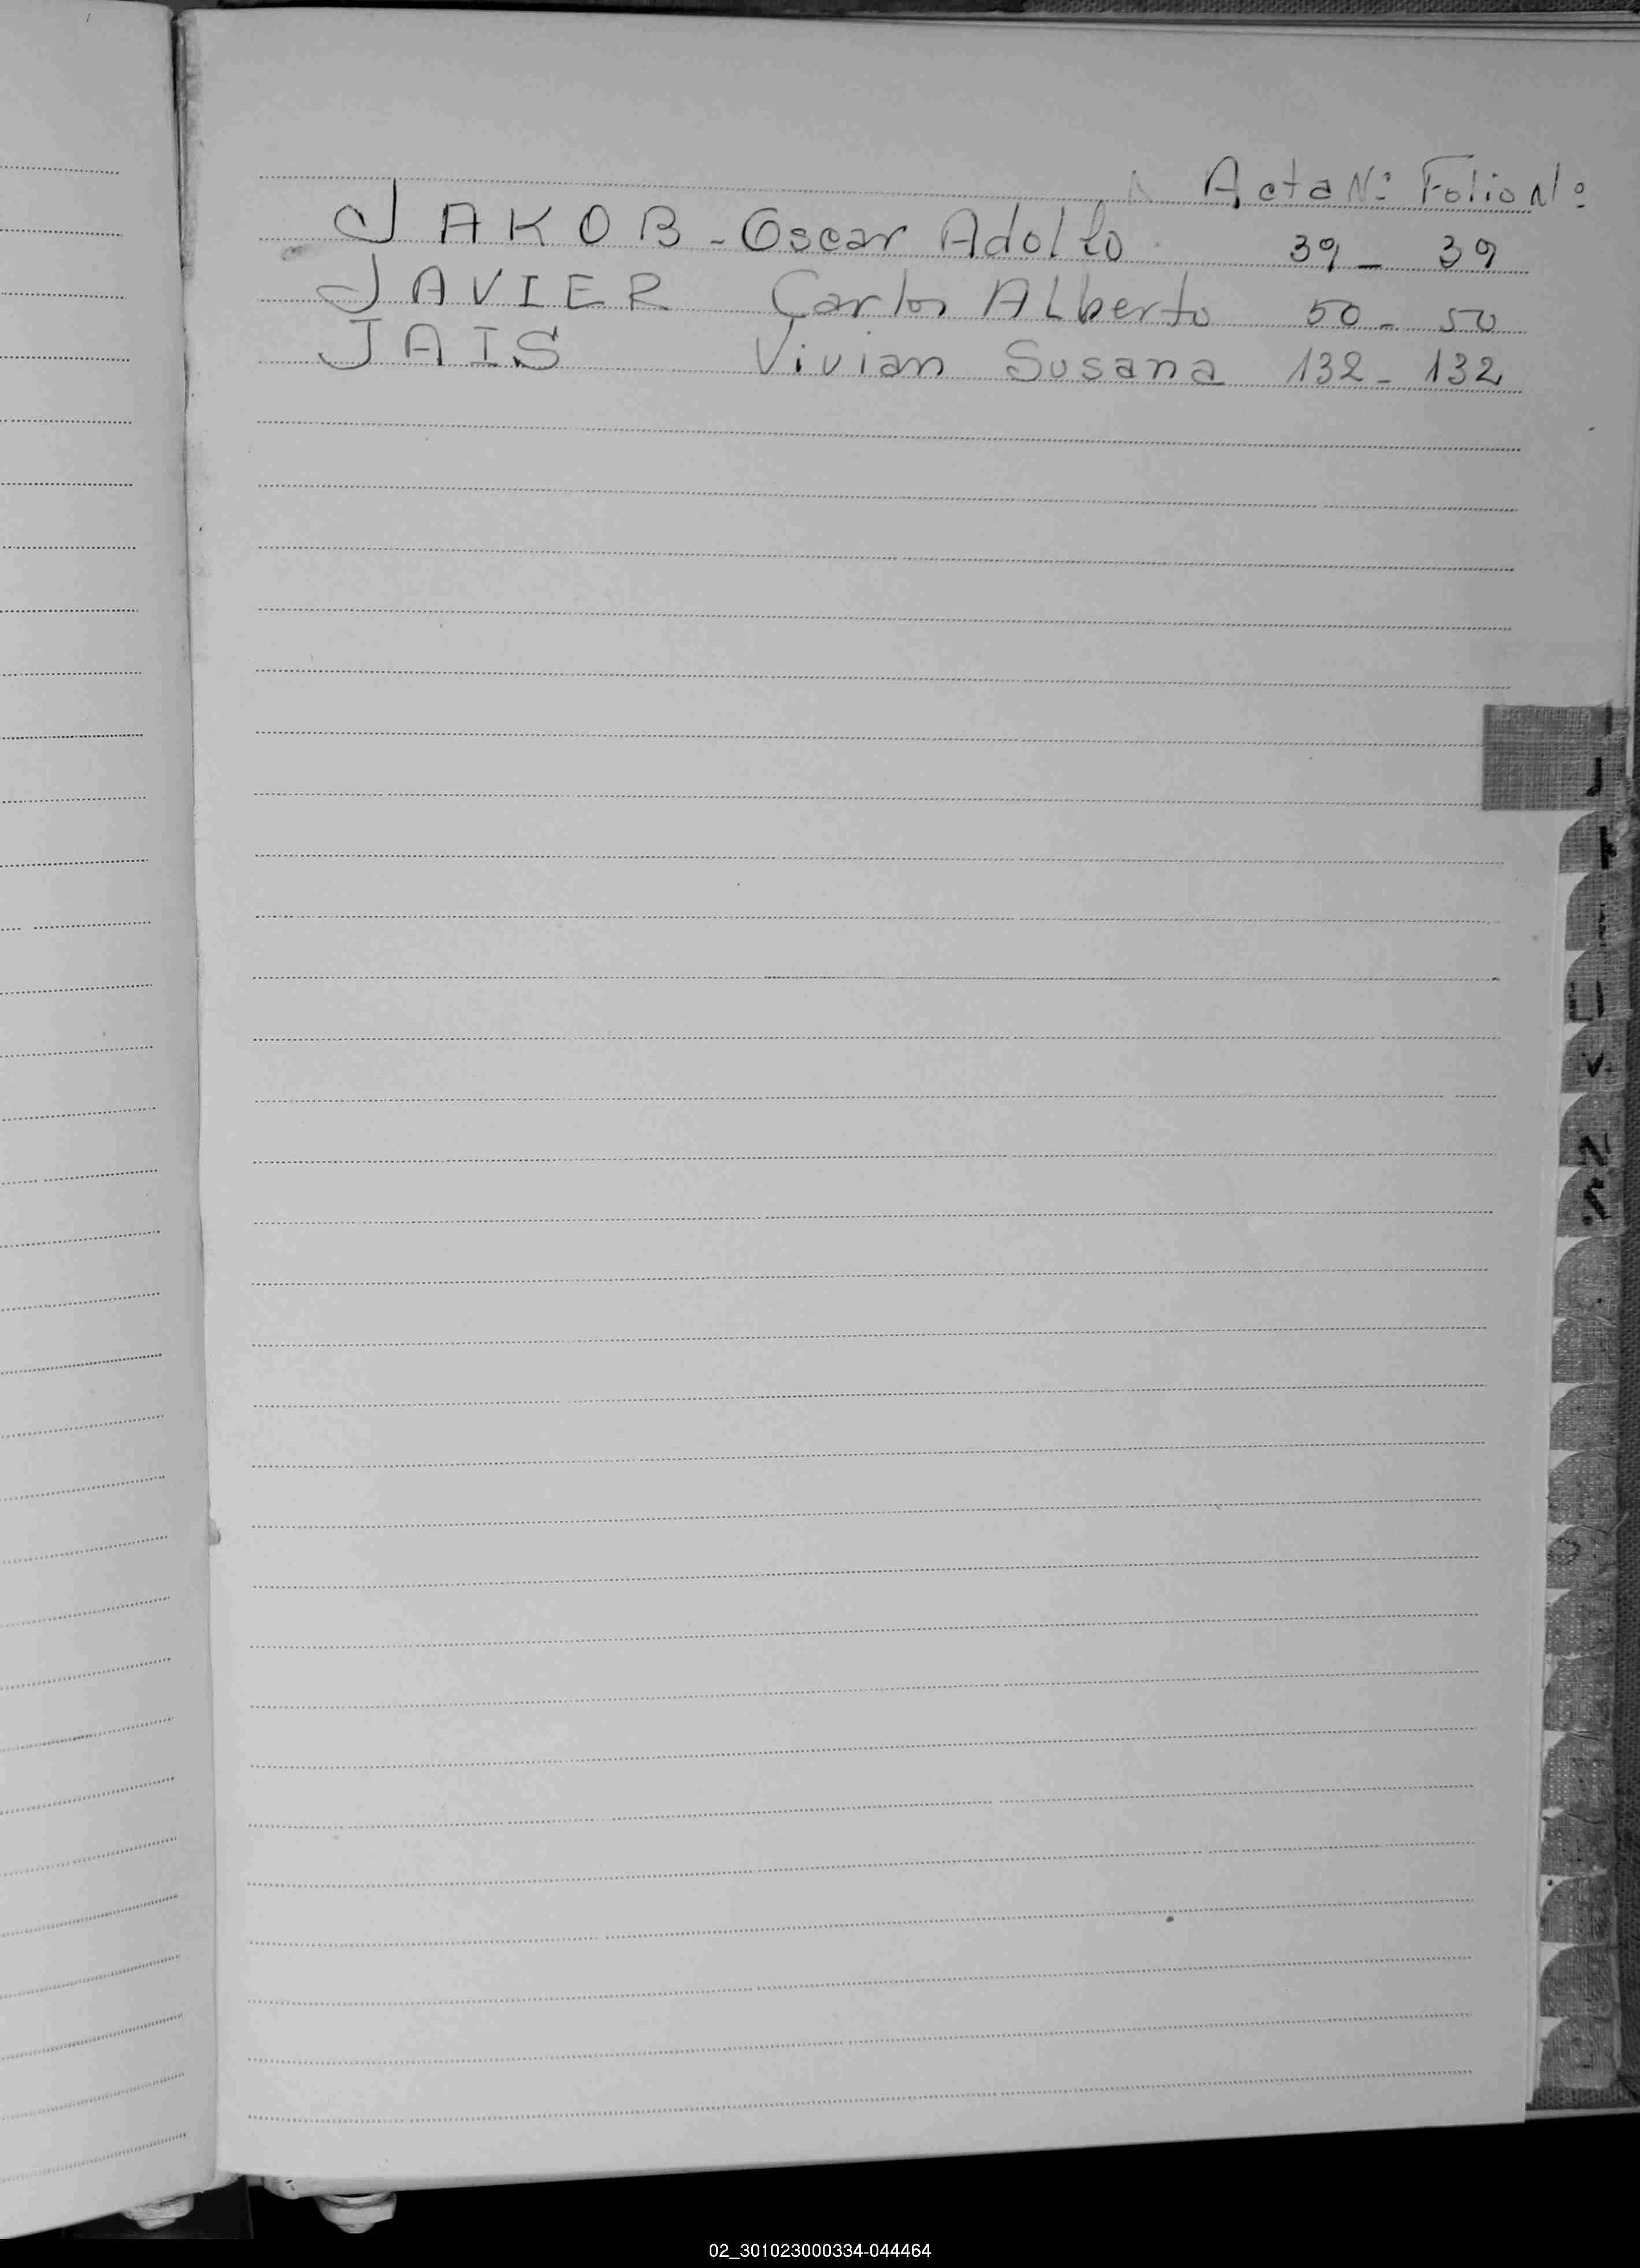 Acta Nº Folio Nº
JAKOB - Oscar Adolfo 39 - 39
JAVIER Carlos ALberto 50 - 50
JAIS Vivian Susana 132 - 132
J
K
02_301023000334-044464